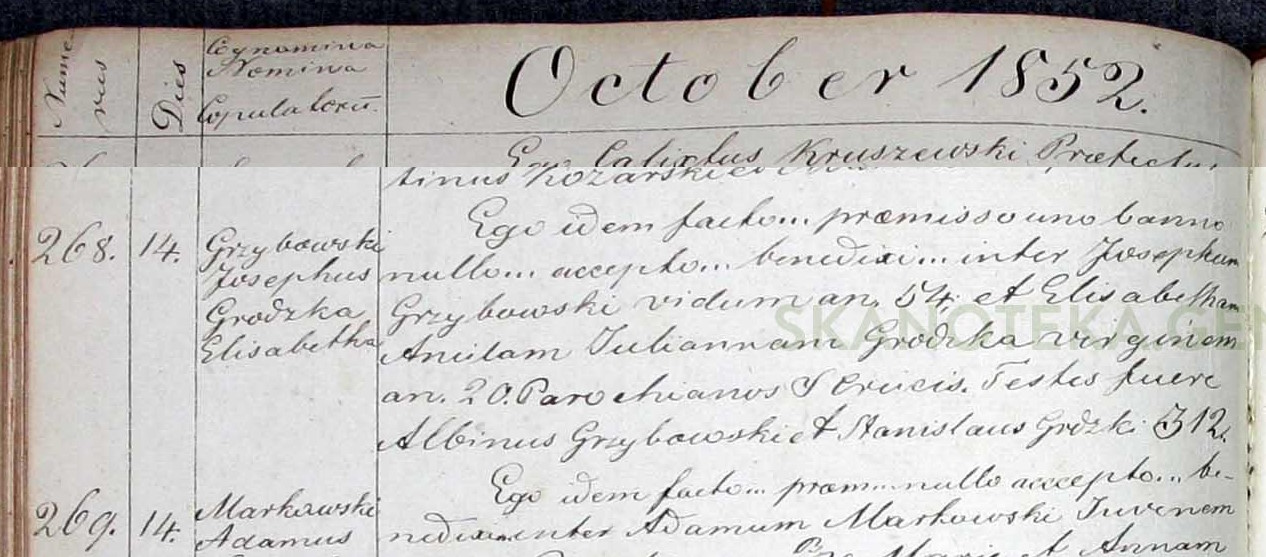 Nume
rus
Dies
Cognomina
Nomina
Copulatorū.
October 1852.
Ego Calixtus Kruszewski Præfectus
tinus Kozarski et
268.
14.
Grzybowski
Josephus
Grodzka
Elisabetha
Ego idem facto... præmisso uno banno
nullo... accepto... benedixi... inter Josephum
Grzybowski viduum an. 54. et Elisabetham
Anielam Juliannam Grodzka virginem
an. 20. Parochianos S Crucis. Testes fuere
Albinus Grzybowski et Stanislaus Grdzki 312.
SKANOTEKA.GEN
269.
14.
Markowski
Adamus
Ego idem facto... præm... nullo accepto... be-
nedixi inter Adamum Markowski Juvenem
et Annam